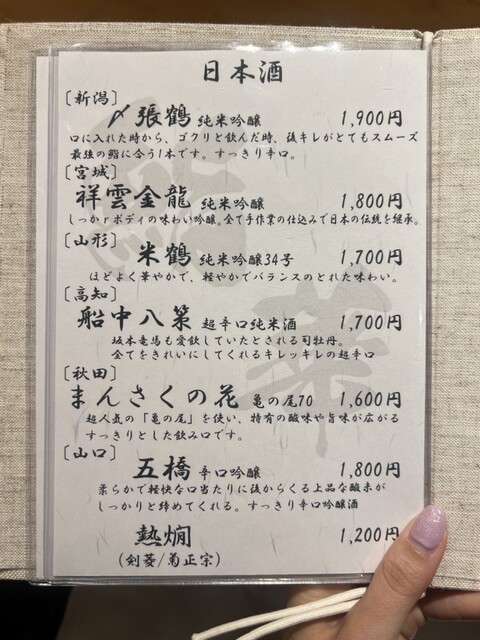 日本酒
〔新潟〕
〆張鶴 純米吟醸 1,900円
口に入れた時から、ゴクりと飲んだ時、後キレがとてもスムーズ
最強の鮨に合う1本です。すっきり辛口。
〔宮城〕
祥雲金龍 純米吟醸 1,800円
しっかrボディの味わい吟醸。全て手作業の仕込みで日本の伝統を継承。
〔山形〕
米鶴 純米吟醸34号 1,700円
ほどよく華やかで、軽やかでバランスのとれた味わい。
〔高知〕
船中八策 超辛口純米酒 1,700円
坂本竜馬も愛飲していたとされる司牡丹。
全てをきれいにしてくれるキレッキレの超辛口
〔秋田〕
まんさくの花 亀の尾70 1,600円
超人気の「亀の尾」を使い、特有の酸味や旨味が広がる
すっきりとした飲み口です。
〔山口〕
五橋 辛口吟醸 1,800円
柔らかで軽快な口当たりに後からくる上品な酸味が
しっかりと締めてくれる。すっきり辛口吟醸酒
熱燗 1,200円
(剣菱/菊正宗)